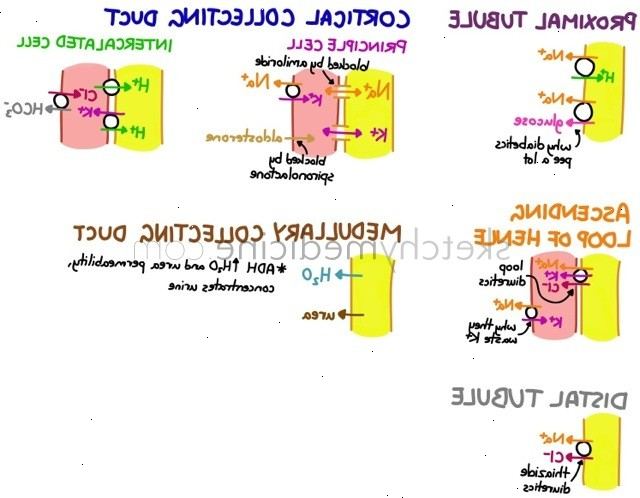 PROXIMAL TUBULE
Na⁺
H⁺
Na⁺
glucose
why diabetics
pee a lot
ASCENDING
LOOP OF HENLE
loop
diuretics
Na⁺
K⁺
Cl⁻
Na⁺
K⁺
why they
waste K⁺
DISTAL TUBULE
Na⁺
Cl⁻
thiazide
diuretics
CORTICAL COLLECTING DUCT
PRINCIPLE CELL
blocked by amiloride
Na⁺
Na⁺
K⁺
K⁺
aldosterone
blocked by
spironolactone
INTERCALATED CELL
H⁺
Cl⁻
HCO₃⁻
K⁺
H⁺
MEDULLARY COLLECTING DUCT
*ADH ↑ H₂O and urea permeability,
concentrates urine
H₂O
urea
sketchymedicine.com